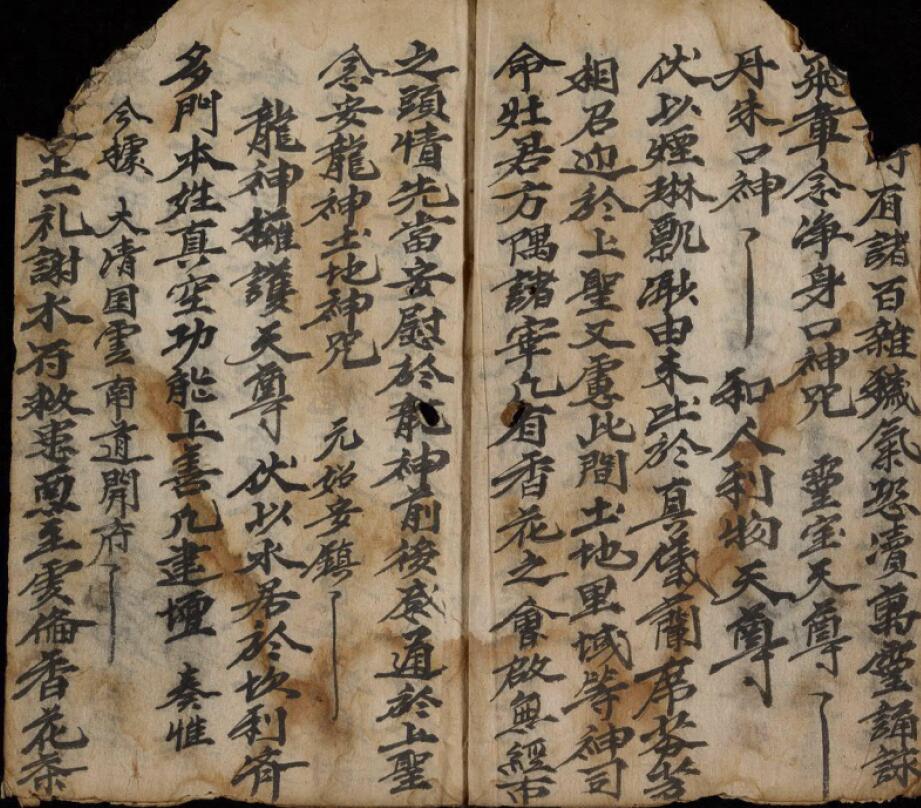 有諸百雜穢氣恐凟萬靈誦詠
飛章念净身口神咒 靈宝天尊
丹朱口神 和人利物天尊
伏以煙琳飄渺由来
於真儀蘭席芬芳
相召迎於上聖又慮此間土地里域等神司
命灶君方隅諸宰凡有香花之會啟無經市
之頭情先當安慰於龍神前後感通於上聖
念安龍神土地神咒 元始安鎮
龍神擁護天尊 伏以水居於坎利濟
多門本姓真空功能上善凡建壇 奏惟
今據 大清国雲南道開府
正一礼謝水府救患
主虔俻香花茶